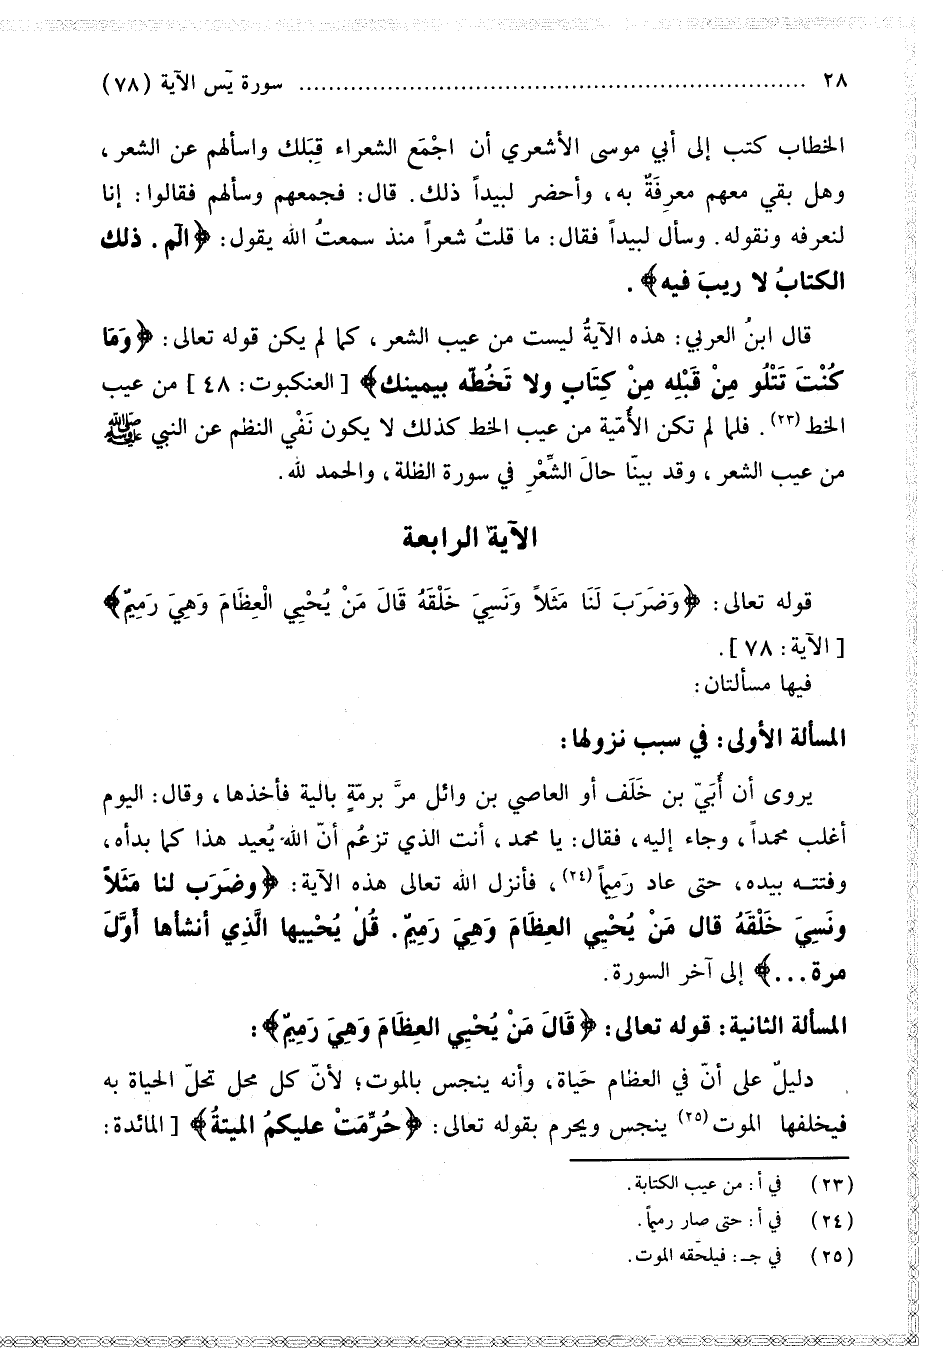 ٢٨ ........................................................................ سورة يَس الآية (٧٨)
الخطاب كتب إلى أبي موسى الأشعري أن اجْمَع الشعراء قِبَلك واسألهم عن الشعر،
وهل بقي معهم معرفَةٌ به، وأحضر لبيداً ذلك. قال: فجمعهم وسألهم فقالوا: إنا
لنعرفه ونقوله. وسأل لبيداً فقال: ما قلتُ شعراً منذ سمعتُ الله يقول: ﴿الۤم. ذلك
الكتابُ لا ريبَ فيه﴾.
قال ابنُ العربي: هذه الآيةُ ليست من عيب الشعر، كما لم يكن قوله تعالى: ﴿وَمَا
كُنْتَ تَتْلُو مِنْ قَبْلِهِ مِنْ كِتَابٍ ولا تَخُطّه بيمينك﴾ [العنكبوت: ٤٨] من عيب
الخط(٢٣). فلما لم تكن الأُمّية من عيب الخط كذلك لا يكون نَفْي النظم عن النبي ﷺ
من عيب الشعر، وقد بينّا حالَ الشِّعْرِ في سورة الظلة، والحمد لله.
الآية الرابعة
قوله تعالى: ﴿وَضَرَبَ لَنَا مَثَلاً وَنَسِيَ خَلْقَهُ قَالَ مَنْ يُحْيِي الْعِظَامَ وَهِيَ رَمِيمٌ﴾
[الآية: ٧٨].
فيها مسألتان:
المسألة الأولى: في سبب نزولها:
يروى أن أُبَيّ بن خَلَف أو العاصي بن وائل مرَّ برمّةٍ بالية فأخذها، وقال: اليوم
أغلب محمداً، وجاء إليه، فقال: يا محمد، أنت الذي تزعُم أنّ الله يُعيد هذا كما بدأه،
وفتتـه بيده، حتى عاد رَمِيماً(٢٤)، فأنزل الله تعالى هذه الآية: ﴿وضَرَب لنا مَثَلاً
ونَسِيَ خَلْقَهُ قال مَنْ يُحْيِي العِظَامَ وَهِيَ رَمِيمٌ. قُلْ يُحْييها الَّذِي أنشأها أَوَّلَ
مرة...﴾ إلى آخر السورة.
المسألة الثانية: قوله تعالى: ﴿قَالَ مَنْ يُحْيِي العِظَامَ وَهِيَ رَمِيمٌ﴾:
دليلٌ على أنّ في العظام حَياة، وأنه ينجس بالموت؛ لأنّ كل محل تحلّ الحياة به
فيخلفها الموت(٢٥) ينجس ويحرم بقوله تعالى: ﴿حُرِّمَتْ عليكمُ الميتةُ﴾ [المائدة:
(٢٣) في أ: من عيب الكتابة.
(٢٤) في أ: حتى صار رميماً.
(٢٥) في جـ: فيلحقه الموت.